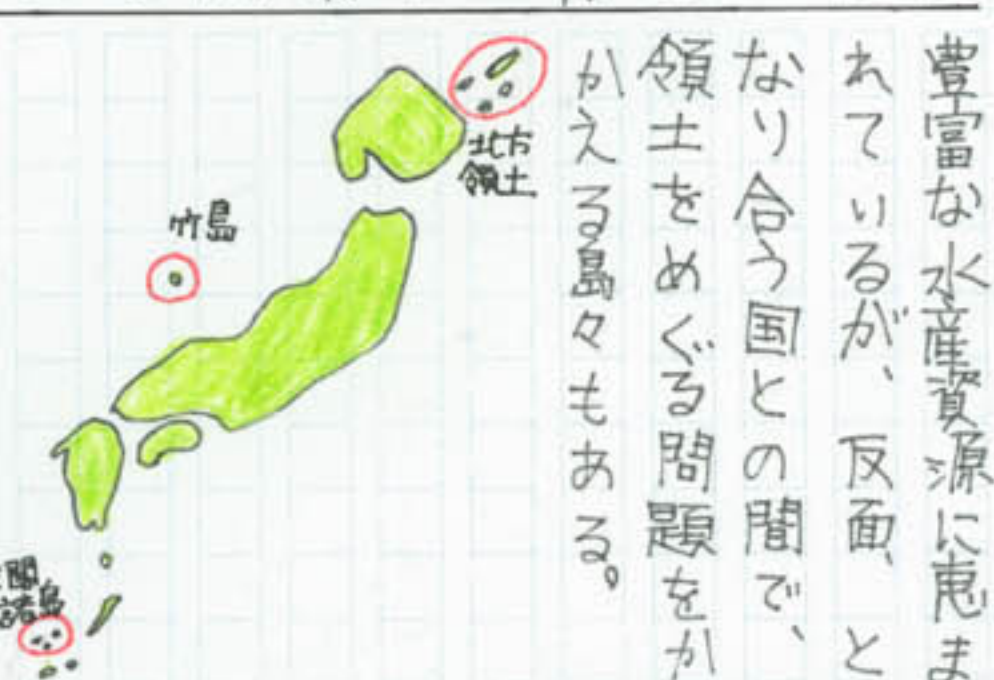 豊富な水産資源に恵ま
れているが、反面、と
なり合う国との間で、
領土をめぐる問題をか
かえる島々もある。
北方
領土
竹島
閣
諸島